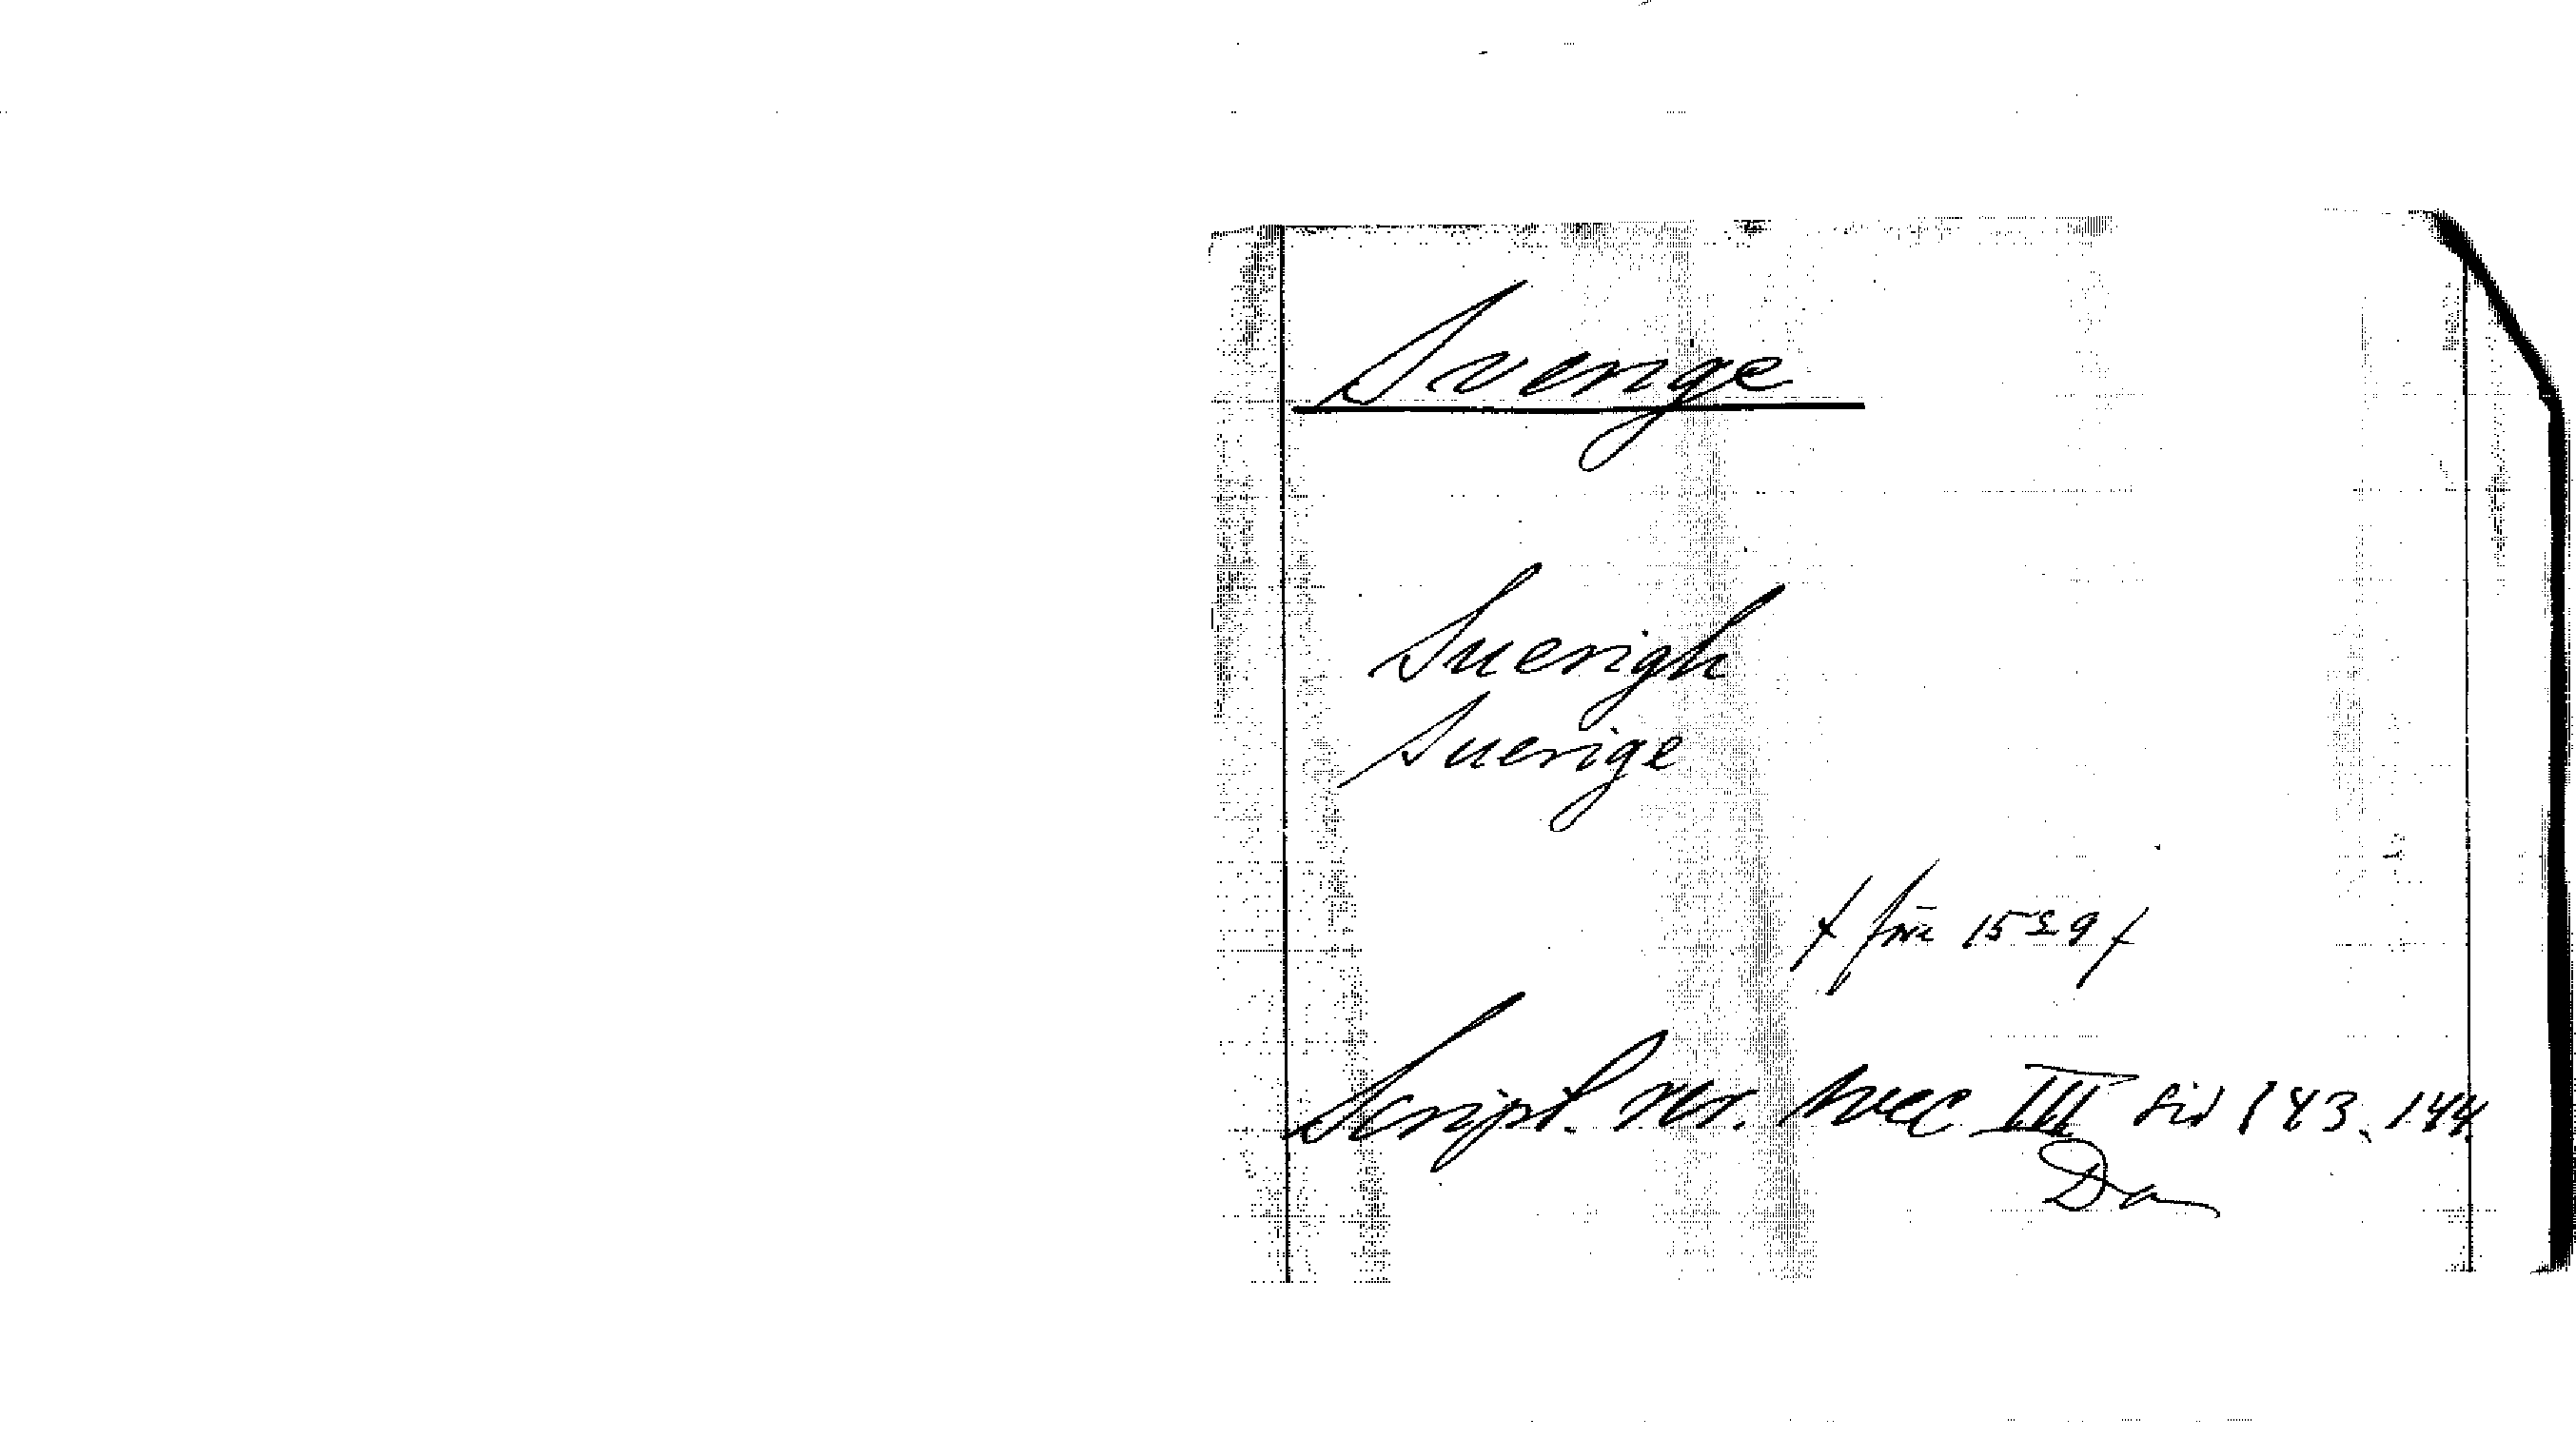 Sverige
Suerigh
Suerige
f före 1529 f
Script. rer. svec III sid 143, 144
Da